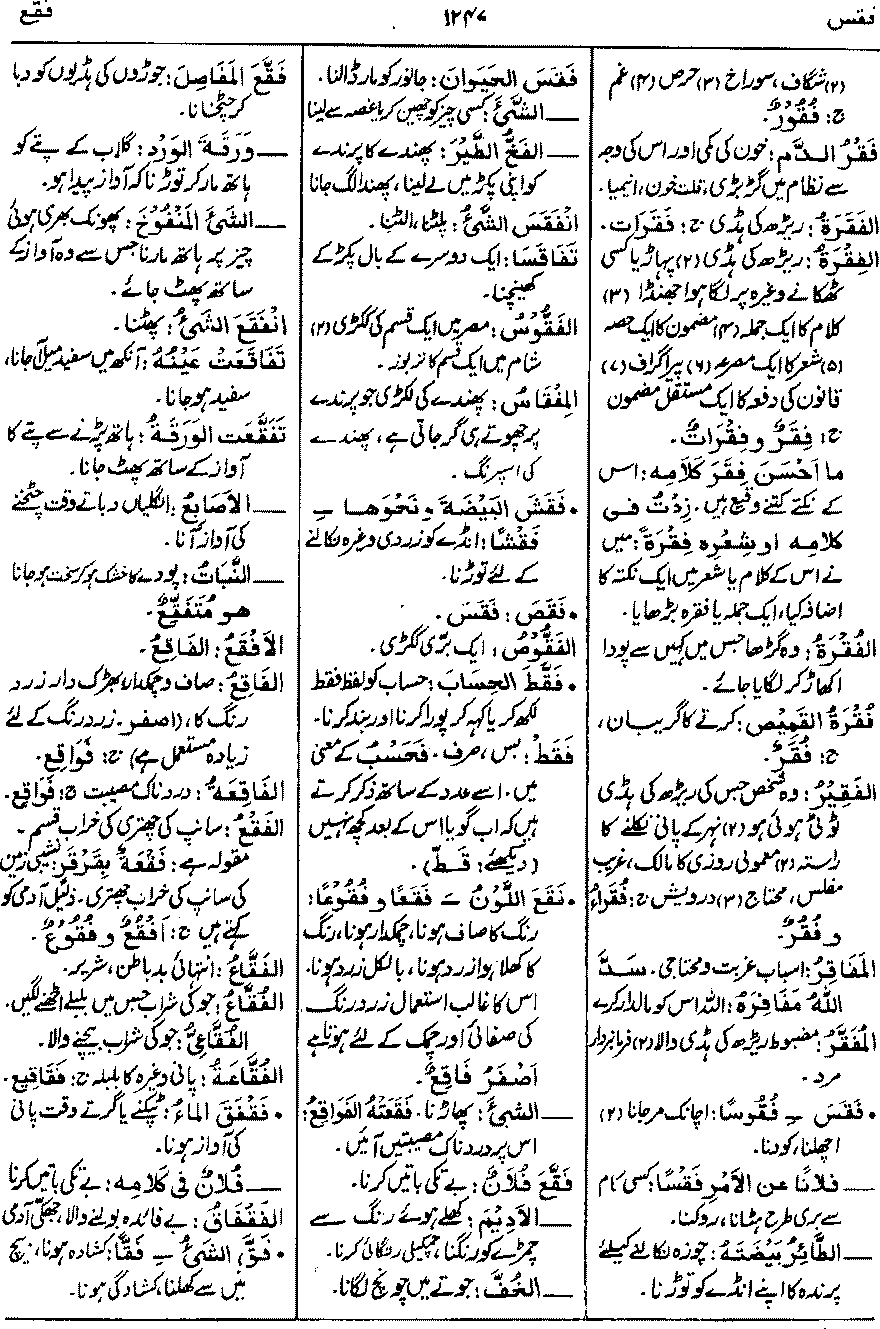 فقس
۱۲۴۷
فقع
(۲) شگاف، سوراخ (۳) حرص (۴) غم
ج: فُقُورٌ۔
فَقْرُ الدَّم: خون کی کمی اور اس کی وجہ
سے نظام میں گڑبڑی، قلت خون، انیمیا۔
الفَقْرَةُ: ریڑھ کی ہڈی ج: فَقَرَات۔
الفِقْرَةُ: ریڑھ کی ہڈی (۲) پہاڑ یا کسی
ٹھکانے وغیرہ پر لگا ہوا جھنڈا (۳)
کلام کا ایک جملہ (۴) مضمون کا ایک حصہ
(۵) شعر کا ایک مصرعہ (۶) پیراگراف (۷)
قانون کی دفعہ کا ایک مستقل مضمون
ج: فِقَرٌ و فِقَراتٌ۔
ما اَحْسَنَ فِقَرَ كَلَامِه: اس
کے نکتے کتنے وقیع ہیں۔ زِدْتُ فی
كلامِه او شِعْرِه فِقْرَةً: میں
نے اس کے کلام یا شعر میں ایک نکتہ کا
اضافہ کیا، ایک جملہ یا فقرہ بڑھایا۔
الفُقْرَةُ: وہ گڑھا جس میں کہیں سے پودا
اکھاڑ کر لگایا جائے۔
فُقْرَةُ القَمِيْص: کرتے کا گریبان،
ج: فُقَرٌ۔
الفَقِيْرُ: وہ شخص جس کی ریڑھ کی ہڈی
ٹوٹی ہوئی ہو (۲) نہر کے پانی نکلنے کا
راستہ (۲) معمولی روزی کا مالک، غریب
مفلس، محتاج (۳) درویش ج: فُقَرَاءُ
و فُقُرٌ۔
المَفَاقِرُ: اسباب غربت و محتاجی۔ سَدَّ
اللّٰهُ مَفَاقِرَهُ: اللہ اس کو مالدار کرے
المُفَقَّرُ: مضبوط ریڑھ کی ہڈی والا (۲) فرمانبردار
مرد۔
• فَقَسَ ـِ فُقُوسًا: اچانک مرجانا (۲)
اچھلنا، کودنا۔
— فلانًا عن الاَمْرِ فَقْسًا: کسی کام
سے بری طرح ہٹانا، روکنا۔
— الطَّائِرُ بَيْضَتَهُ: چوزہ نکالنے کیلئے
پرندہ کا اپنے انڈے کو توڑنا۔
فَقَسَ الحَيَوانَ: جانور کو مار ڈالنا۔
— الشَّیْءَ: کسی چیز کو چھین کر یا غصہ سے لینا
— الفَخُّ الطَّيْرَ: پھندے کا پرندے
کو اپنی پکڑ میں لے لینا، پھندا لگ جانا
اِنْفَقَسَ الشَّیْءُ: پلٹنا، الٹنا۔
تَفَاقَسَا: ایک دوسرے کے بال پکڑ کے
کھینچنا۔
الفَقُّوْسُ: مصر میں ایک قسم کی ککڑی (۲)
شام میں ایک قسم کا تربوز۔
المِفْقَاسُ: پھندے کی لکڑی جو پرندے
پر چھوتے ہی گر جاتی ہے، پھندے
کی اسپرنگ۔
• فَقَشَ البَيْضَةَ و نَحْوَها ـِ
فَقْشًا: انڈے کو زردی وغیرہ نکالنے
کے لئے توڑنا۔
• فَقَصَ: فَقَسَ۔
الفَقُّوْصُ: ایک بڑی ککڑی۔
• فَقَّطَ الحِسَابَ: حساب کو لفظ فقط
لکھ کر یا کہہ کر پورا کرنا اور بند کرنا۔
فَقَطْ: بس، صرف۔ فَحَسْبُ کے معنی
میں۔ اسے عدد کے ساتھ ذکر کرتے
ہیں کہ اب گویا اس کے بعد کچھ نہیں
(دیکھئے: قَطْ)۔
• فَقَعَ اللَّوْنُ ـَ فَقْعًا و فُقُوعًا:
رنگ کا صاف ہونا، چمکدار ہونا، رنگ
کا کھلا ہوا زرد ہونا، بالکل زرد ہونا۔
اس کا غالب استعمال زرد رنگ
کی صفائی اور چمک کے لئے ہوتا ہے
اَصْفَرُ فَاقِعٌ۔
— الشیْءَ: پھاڑنا۔ فَقَعَتْهُ الفَوَاقِعُ:
اس پر دردناک مصیبتیں آئیں۔
فَقَّعَ فُلَانٌ: بے تکی باتیں کرنا۔
— الاَدِيْمَ: کھلے ہوئے رنگ سے
چمڑے کو رنگنا، چمکیلی رنگائی کرنا۔
— الخُفَّ: جوتے میں چونچ لگانا۔
فَقَّعَ المَفَاصِلَ: جوڑوں کی ہڈیوں کو دبا
کر چٹخانا۔
— وَرَقَةَ الوَرْدِ: گلاب کے پتے کو
ہاتھ مار کر توڑنا کہ آواز پیدا ہو۔
— الشیْءَ المَنْفُوْخَ: پھونک بھری ہوئی
چیز پر ہاتھ مارنا جس سے وہ آواز کے
ساتھ پھٹ جائے۔
اِنْفَقَعَ الشَّیْءُ: پھٹنا۔
تَفَاقَعَتْ عَيْنُهُ: آنکھ میں سفید میل آجانا،
سفید ہو جانا۔
تَفَقَّعَت الوَرَقَةُ: ہاتھ پڑنے سے پتے کا
آواز کے ساتھ پھٹ جانا۔
— الاَصَابِعُ: انگلیاں دباتے وقت چٹخنے
کی آواز آنا۔
— النَّبَاتُ: پودے کا خشک ہو کر سخت ہو جانا
هو مُتَفَقِّعٌ۔
الاَفْقَعُ: الفَاقِعُ۔
الفَاقِعُ: صاف و چمکدار، بھڑک دار زرد
رنگ کا، (اصفر۔ زرد رنگ کے لئے
زیادہ مستعمل ہے) ج: فَوَاقِع۔
الفَاقِعَةُ: دردناک مصیبت ج: فَوَاقِع۔
الفَقْعُ: سانپ کی چھتری کی خراب قسم۔
مقولہ ہے: فَقْعَةٌ بِقَرْقَرٍ: نشیبی زمین
کی سانپ کی خراب چھتری۔ ذلیل آدمی کو
کہتے ہیں ج: اَفْقُعٌ و فُقُوْعٌ۔
الفَقَّاعُ: انتہائی بد باطن، شریر۔
الفُقَّاعُ: جو کی شراب جس میں بلبلے اٹھنے لگیں۔
الفُقَّاعِیُّ: جو کی شراب بیچنے والا۔
الفُقَّاعَةُ: پانی وغیرہ کا بلبلہ ج: فَقَاقِیع۔
• فَقْفَقَ الماءُ: ٹپکتے یا گرتے وقت پانی
کی آواز ہونا۔
— فُلَانٌ فی كَلَامِه: بے تکی باتیں کرنا
الفَقْفَاقُ: بے فائدہ بولنے والا، جھکّی آدمی
• فَقَّ الشَّیْءُ ـِ فَقًّا: کشادہ ہونا، بیچ
میں سے کھلنا، کشادگی ہونا۔